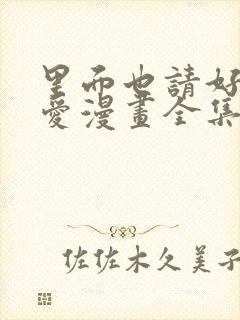 里而也請好
愛漫畫全集
佐佐木久美子